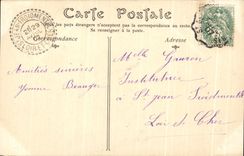 Carte Postale
Tous les pays étrangers n'acceptent pas la correspondance au recto.
Se renseigner à la poste.
Correspondance
Adresse
Melle Gauron
Institutrice
à St Jean Froidmentel
Loir et Cher
Amitiés sincères
Yvonne